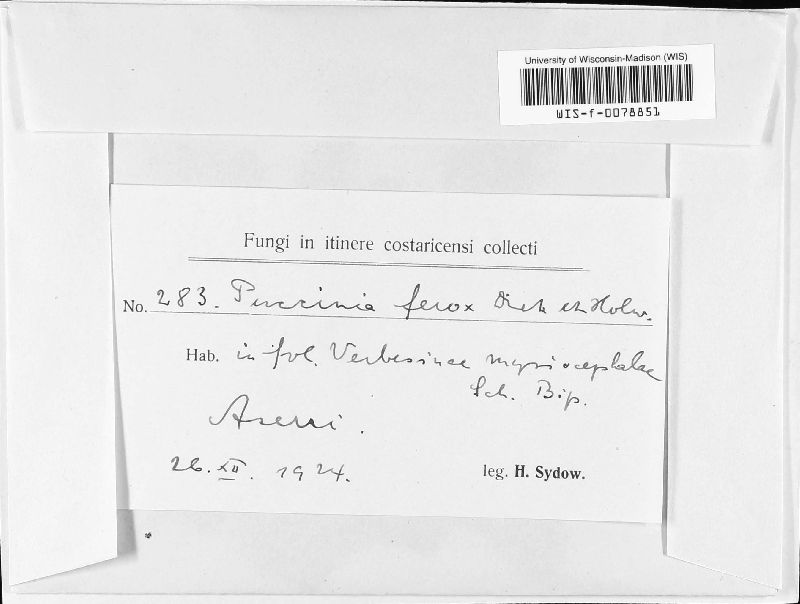 University of Wisconsin-Madison (WIS)
WIS-f-0078851
Fungi in itinere costaricensi collecti
No. 283. Puccinia ferox Diet et Holw.
Hab. in fol. Verbesinae myriocephalae
Sch. Bip.
Aserri.
26. XII. 1924.
leg. H. Sydow.